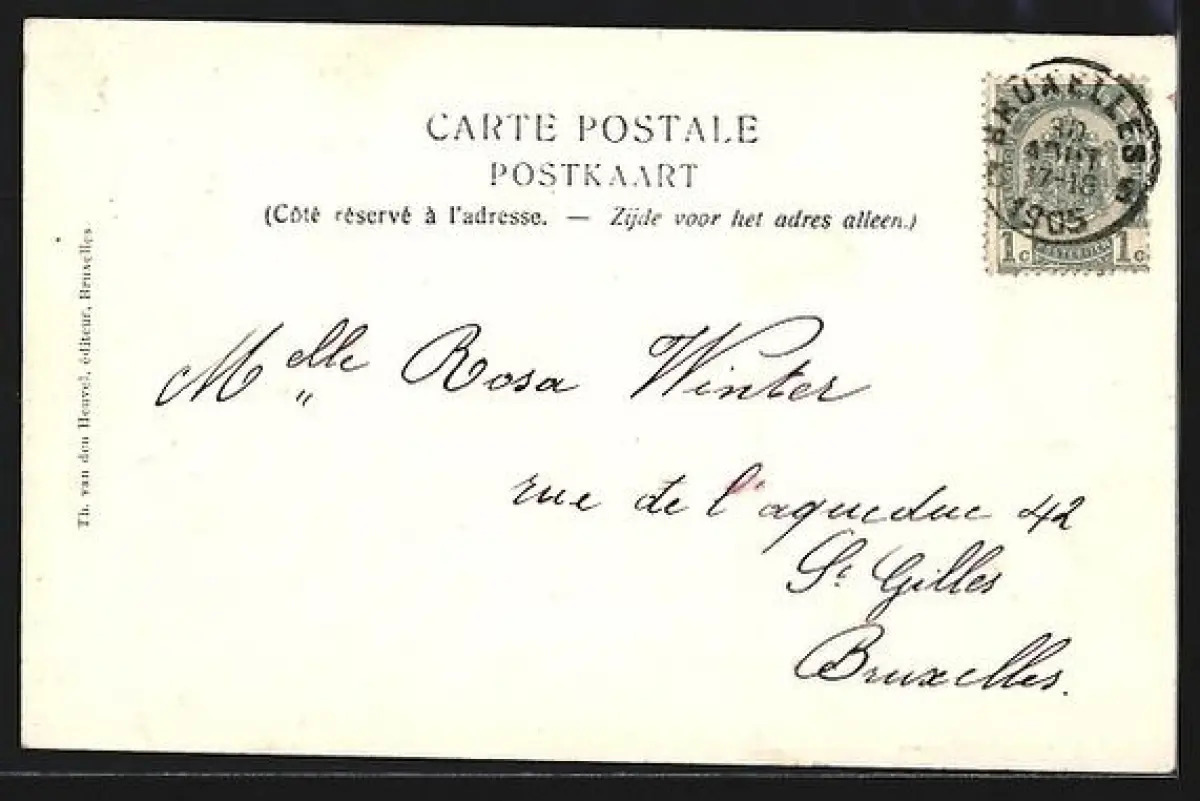 CARTE POSTALE
POSTKAART
(Côté réservé à l'adresse. — Zijde voor het adres alleen.)
BRUXELLES 5
30
AOUT
17-18
1905
1c 1c
Th. van den Heuvel, éditeur, Bruxelles.
Melle Rosa Winter
rue de l'aqueduc 42
St Gilles
Bruxelles.